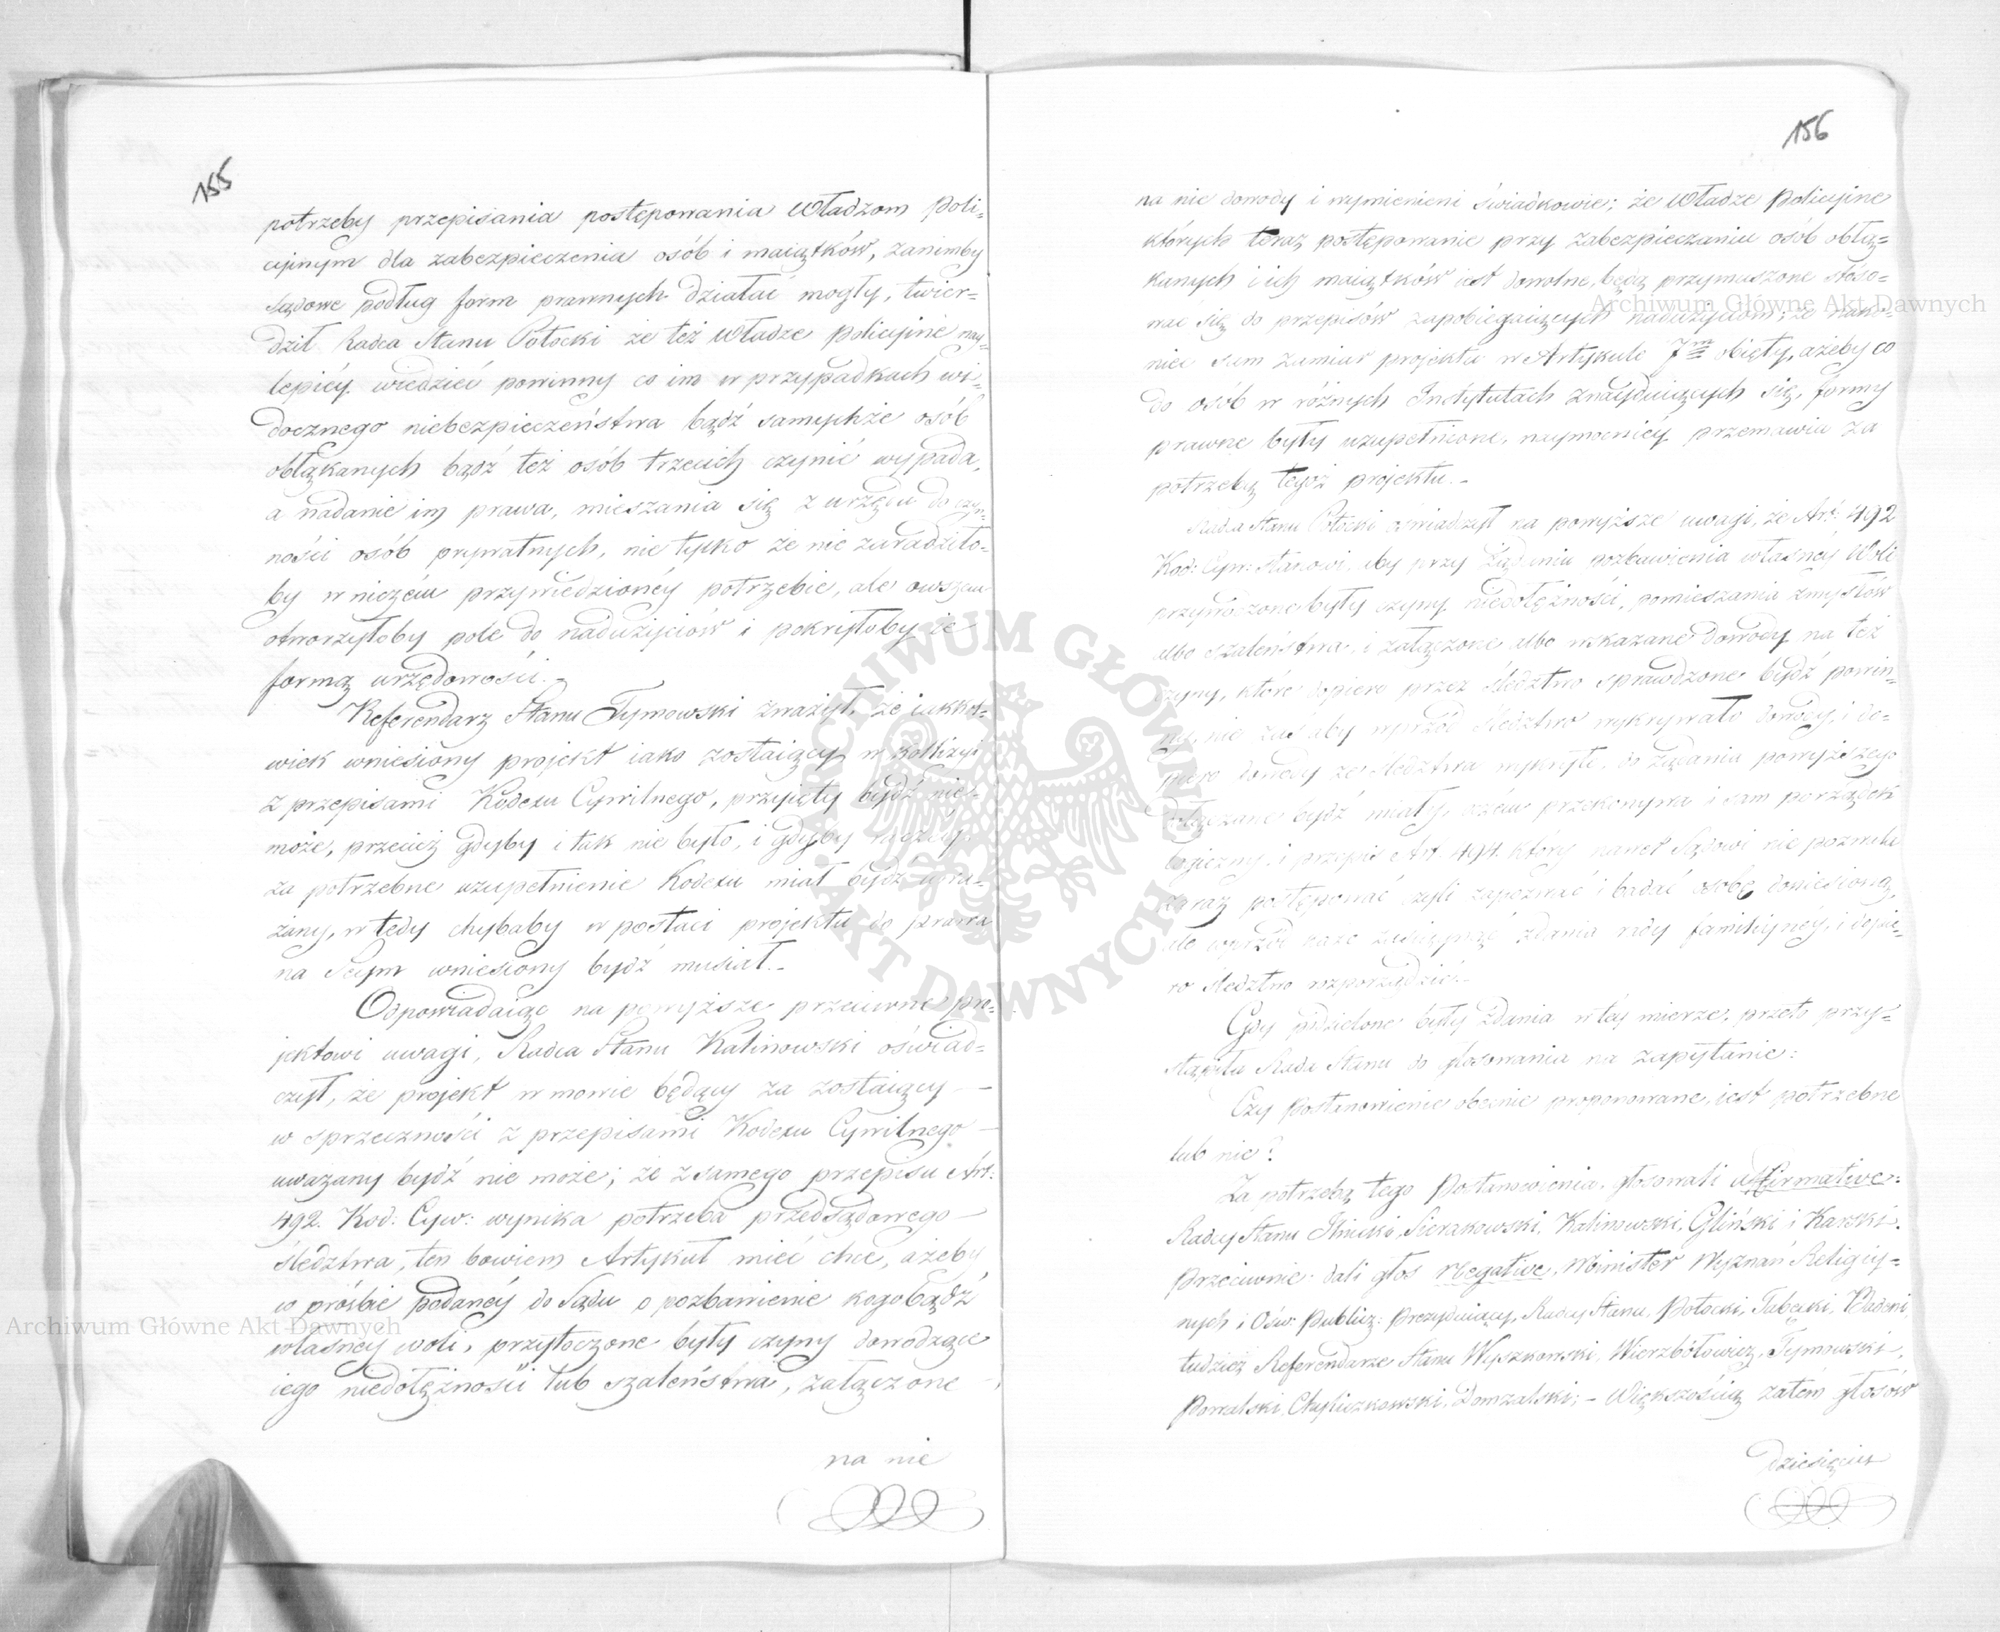 155
potrzeby przepisania postępowania Władzom Poli-
cyinym dla zabezpieczenia osób i maiątków, zanimby
Sądowe podług form prawnych działać mogły, twier-
dził Radca Stanu Potocki że też Władze Policyine nay-
lepiéy wiedzieć powinny co im w przypadkach wi-
docznego niebezpieczeństwa bądź samychże osób
obłąkanych bądź też osób trzecich czynić wypada,
a nadanie im prawa, mieszania się z urzędu do czyn-
ności osób prywatnych, nie tylko że nie zaradziło-
by w niczém przywiedzionéy potrzebie, ale owszem
otworzyłoby pole do nadużyciów i pokryłoby ie
formą urzędowości.
Referendarz Stanu Tymowski zważył, że iakkol-
wiek wniesiony projekt iako zostaiący w kollizyi
z przepisami Kodexu Cywilnego, przyięty bydź nie
może, przecież gdyby i tak nie było, i gdyby raczéy
za potrzebne uzupełnienie Kodexu miał bydź uwa-
żany, wtedy chybaby w postaci projektu do prawa
na Seym wniesiony bydź musiał.-
Odpowiadaiąc na powyższe przeciwne pro-
jektowi uwagi, Radca Stanu Kalinowski oświad-
czył, że projekt w mowie będący za zostaiący -
w sprzeczności z przepisami Kodexu Cywilnego -
uważany bydź nie może; że z samego przepisu Art:
492. Kod: Cyw: wynika potrzeba przedsądowego -
śledztwa, ten bowiem Artykuł mieć chce, ażeby
w prośbie podanéy do Sądu o pozbawienie kogobądź
własnéy woli, przytoczone były czyny dowodzące
iego niedołężności lub szaleństwa, załączone -
na nie
156
na nie dowody i wymienieni świadkowie; że Władze Policyine
których teraz postępowanie przy zabezpieczaniu osób obłą-
kanych i ich maiątków iest dowolne, będą przymuszone stoso-
wać się do przepisów zapobiegaiących nadużyciom; że nako-
niec sam zamiar projektu w Artykule 7m obięty, ażeby co
do osób w różnych Instytutach znayduiących się, formy
prawne były uzupełnione, naymocniéy przemawia za
potrzebą tegoż projektu.-
Radca Stanu Potocki oświadczył na powyższe uwagi, że Art: 492
Kod: Cyw: stanowi, aby przy żądaniu pozbawienia własnéy Woli
przytoczone były czyny niedołężności, pomieszania zmysłów
albo szaleństwa, i załączone albo wskazane dowody na też
czyny, które dopiero przez śledztwo sprawdzone bydź powin-
ny, nie zaś aby wprzód śledztwo wykrywało dowody, i do-
piero dowody ze śledztwa wynikłe, do żądania powyższego
dołączane bydź miały, o czém przekonywa i sam porządek
logiczny, i przepis Art. 494. który nawet Sądowi nie pozwala
zaraz postępować czyli zapozwać i badać osobę doniesioną,
ale wprzód każe zasięgnąć zdania rady familiynéy, i dopie-
ro śledztwo rozporządzić.-
Gdy podzielone były zdania w téy mierze, przeto przy-
stąpiła Rada Stanu do głosowania na zapytanie:
Czy Postanowienie obecnie proponowane, iest potrzebne
lub nie?
Za potrzebą tego Postanowienia, głosowali affirmative:
Radcy Stanu Sierakowski, Kalinowski, Gliński i Karski.
Przeciwnie dali głos negative, Minister Wyznań Religiy-
nych i Ośw: Publicz: Prezyduiący, Radcy Stanu, Potocki, Badeni,
tudzież Referendarze Stanu Wyszkowski, Wierzbołowicz, Tymowski,
Powalski, Chyliczkowski, Domżalski; - Większością zatém głosów
dziesięciu
ARCHIWUM GŁÓWNE AKT DAWNYCH
Archiwum Główne Akt Dawnych
Archiwum Główne Akt Dawnych